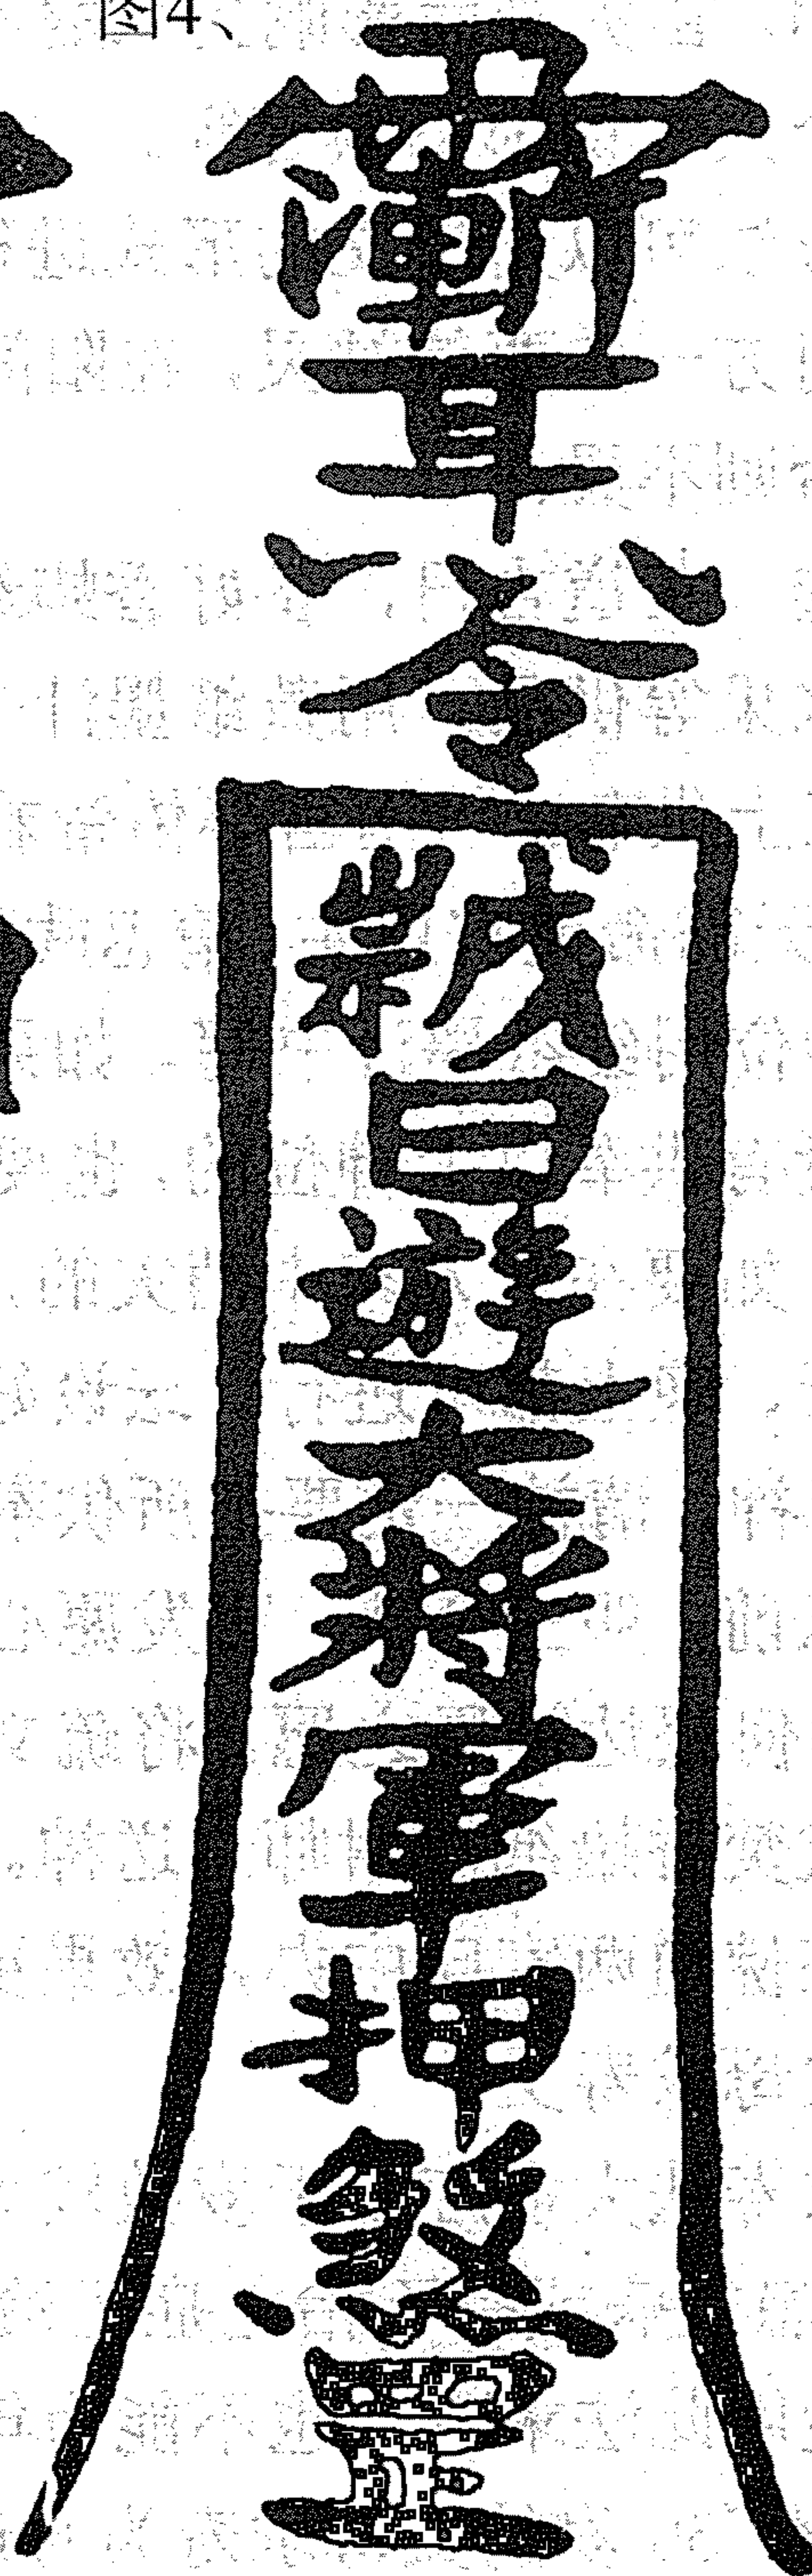 图4、
令
日
遊
大
將
軍
押
煞
罡